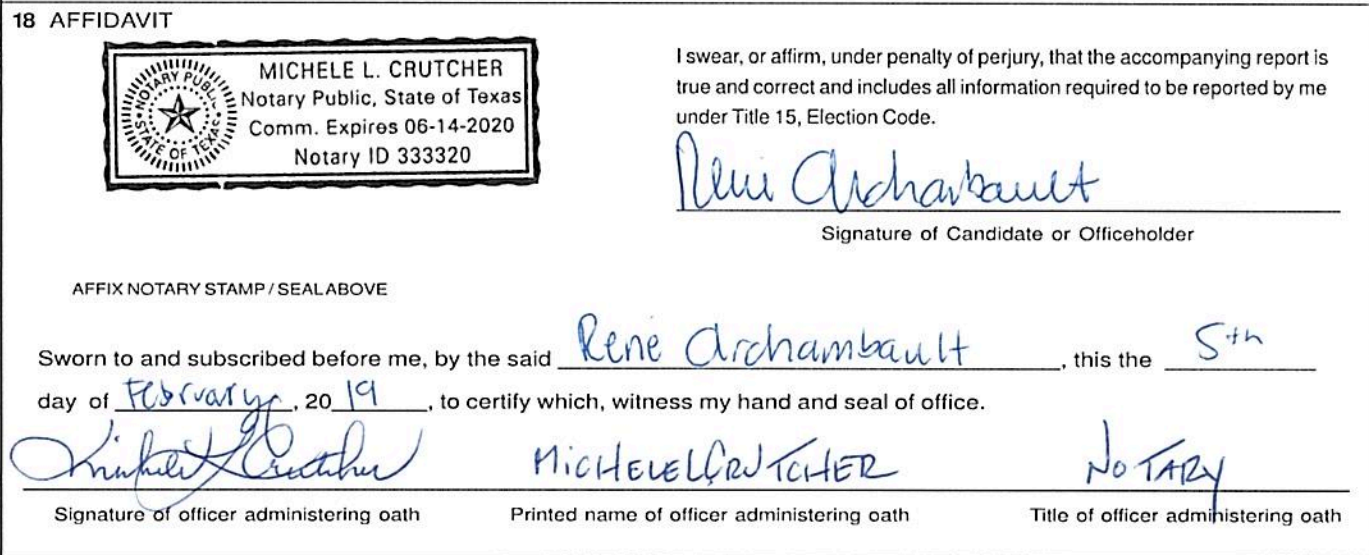 18 AFFIDAVIT
NOTARY PUBLIC
STATE OF TEXAS
MICHELE L. CRUTCHER
Notary Public, State of Texas
Comm. Expires 06-14-2020
Notary ID 333320
I swear, or affirm, under penalty of perjury, that the accompanying report is
true and correct and includes all information required to be reported by me
under Title 15, Election Code.
Rene Archambault
Signature of Candidate or Officeholder
AFFIX NOTARY STAMP / SEAL ABOVE
Sworn to and subscribed before me, by the said Rene Archambault, this the 5th
day of February, 2019, to certify which, witness my hand and seal of office.
Michele L Crutcher MICHELE L CRUTCHER NOTARY
Signature of officer administering oath Printed name of officer administering oath Title of officer administering oath